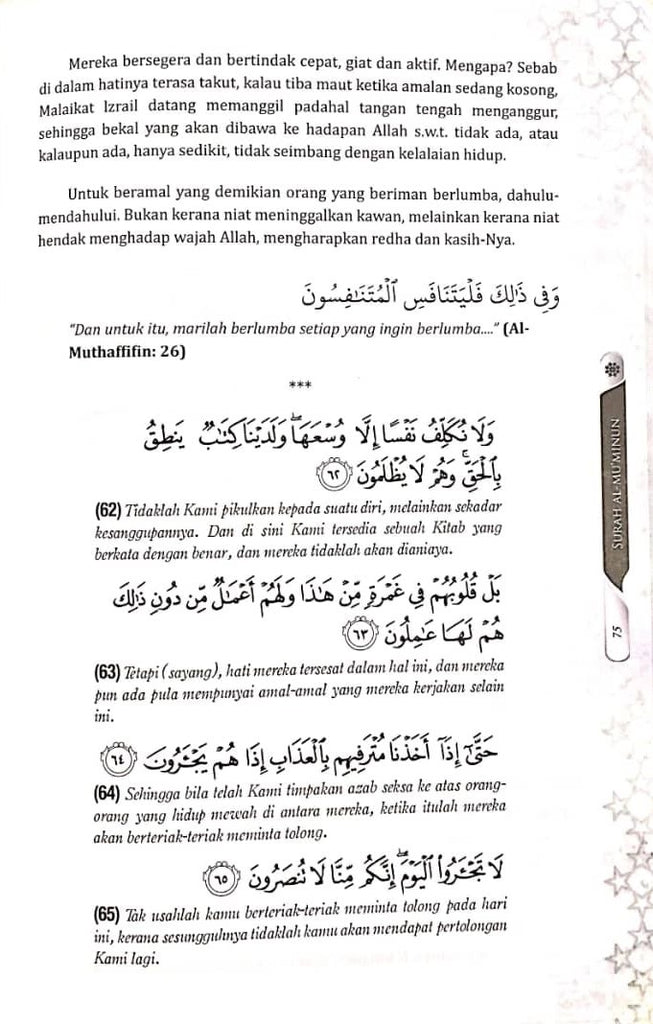 Mereka bersegera dan bertindak cepat, giat dan aktif. Mengapa? Sebab
di dalam hatinya terasa takut, kalau tiba maut ketika amalan sedang kosong,
Malaikat Izrail datang memanggil padahal tangan tengah menganggur,
sehingga bekal yang akan dibawa ke hadapan Allah s.w.t. tidak ada, atau
kalaupun ada, hanya sedikit, tidak seimbang dengan kelalaian hidup.
Untuk beramal yang demikian orang yang beriman berlumba, dahulu-
mendahului. Bukan kerana niat meninggalkan kawan, melainkan kerana niat
hendak menghadap wajah Allah, mengharapkan redha dan kasih-Nya.
وَفِي ذَٰلِكَ فَلْيَتَنَافَسِ ٱلْمُتَنَٰفِسُونَ
"Dan untuk itu, marilah berlumba setiap yang ingin berlumba...." (Al-
Muthaffifin: 26)
***
وَلَا نُكَلِّفُ نَفْسًا إِلَّا وُسْعَهَا ۖ وَلَدَيْنَا كِتَٰبٌ يَنطِقُ
بِٱلْحَقِّ ۚ وَهُمْ لَا يُظْلَمُونَ ٦٢
(62) Tidaklah Kami pikulkan kepada suatu diri, melainkan sekadar
kesanggupannya. Dan di sini Kami tersedia sebuah Kitab yang
berkata dengan benar, dan mereka tidaklah akan dianiaya.
بَلْ قُلُوبُهُمْ فِي غَمْرَةٍ مِّنْ هَٰذَا وَلَهُمْ أَعْمَٰلٌ مِّن دُونِ ذَٰلِكَ
هُمْ لَهَا عَٰمِلُونَ ٦٣
(63) Tetapi (sayang), hati mereka tersesat dalam hal ini, dan mereka
pun ada pula mempunyai amal-amal yang mereka kerjakan selain
ini.
حَتَّىٰٓ إِذَآ أَخَذْنَا مُتْرَفِيهِم بِٱلْعَذَابِ إِذَا هُمْ يَجْـَٔرُونَ ٦٤
(64) Sehingga bila telah Kami timpakan azab seksa ke atas orang-
orang yang hidup mewah di antara mereka, ketika itulah mereka
akan berteriak-teriak meminta tolong.
لَا تَجْـَٔرُوا۟ ٱلْيَوْمَ ۖ إِنَّكُم مِّنَّا لَا تُنصَرُونَ ٦٥
(65) Tak usahlah kamu berteriak-teriak meminta tolong pada hari
ini, kerana sesungguhnya tidaklah kamu akan mendapat pertolongan
Kami lagi.
SURAH AL-MU'MINUN
75